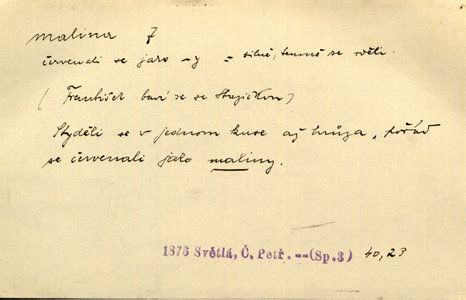 malina f
červenali se jako -y = silně, temně se rděli.
(František baví se se
Styděli se v jednom kuse až hrůza, pořád
se červenali jako maliny.
1876 Světlá, Č. Petř. --(Sp.3) 40,27